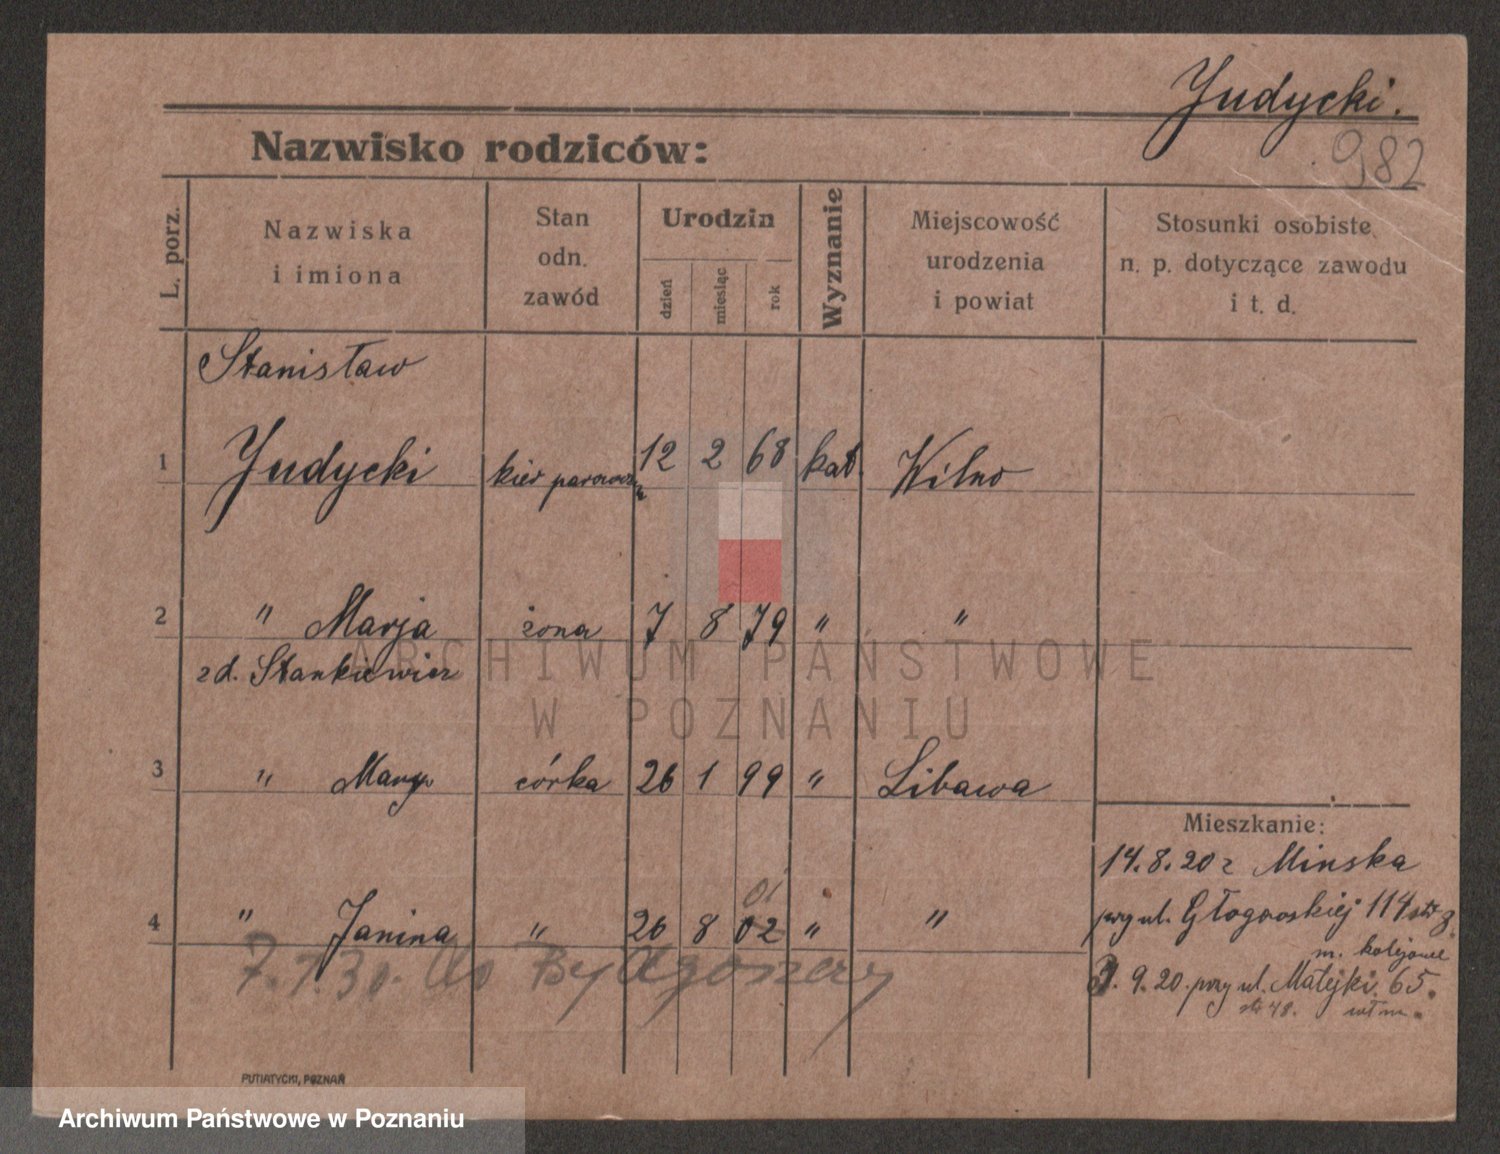 Judycki.
982
Nazwisko rodziców:
L. porz.
Nazwiska
i imiona
Stan
odn.
zawód
Urodzin
dzień
miesiąc
rok
Wyznanie
Miejscowość
urodzenia
i powiat
Stosunki osobiste
n. p. dotyczące zawodu
i t. d.
Stanisław
1 Judycki kier parowozu 12 2 68 kat. Wilno
2 " Marja żona 7 8 79 " "
zd. Stankiewicz
3 " Marya córka 26 1 99 " Libawa
Mieszkanie:
14.8.20 z Mińska
01
4 " Janina " 26 8 02 " "
przy ul. Głogowskiej 114
m. kolejowe
7.1.30. do Bydgoszczy
9.20. przy ul. Matejki 65.
48.
PUTIATYCKI, POZNAŃ
ARCHIWUM PAŃSTWOWE
W POZNANIU
Archiwum Państwowe w Poznaniu